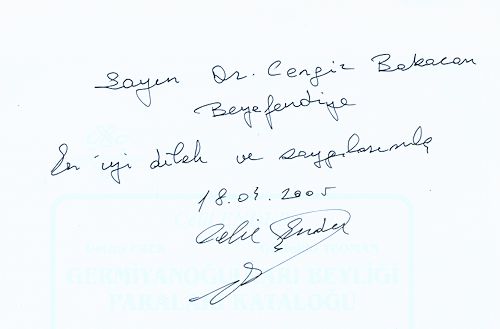 Sayın Dr. Cengiz Bakacan
Beyefendiye
En iyi dilek ve saygılarımla
18.04.2005
Celil Ender
GERMİYANOĞULLARI BEYLİĞİ
PARALARI KATALOĞU